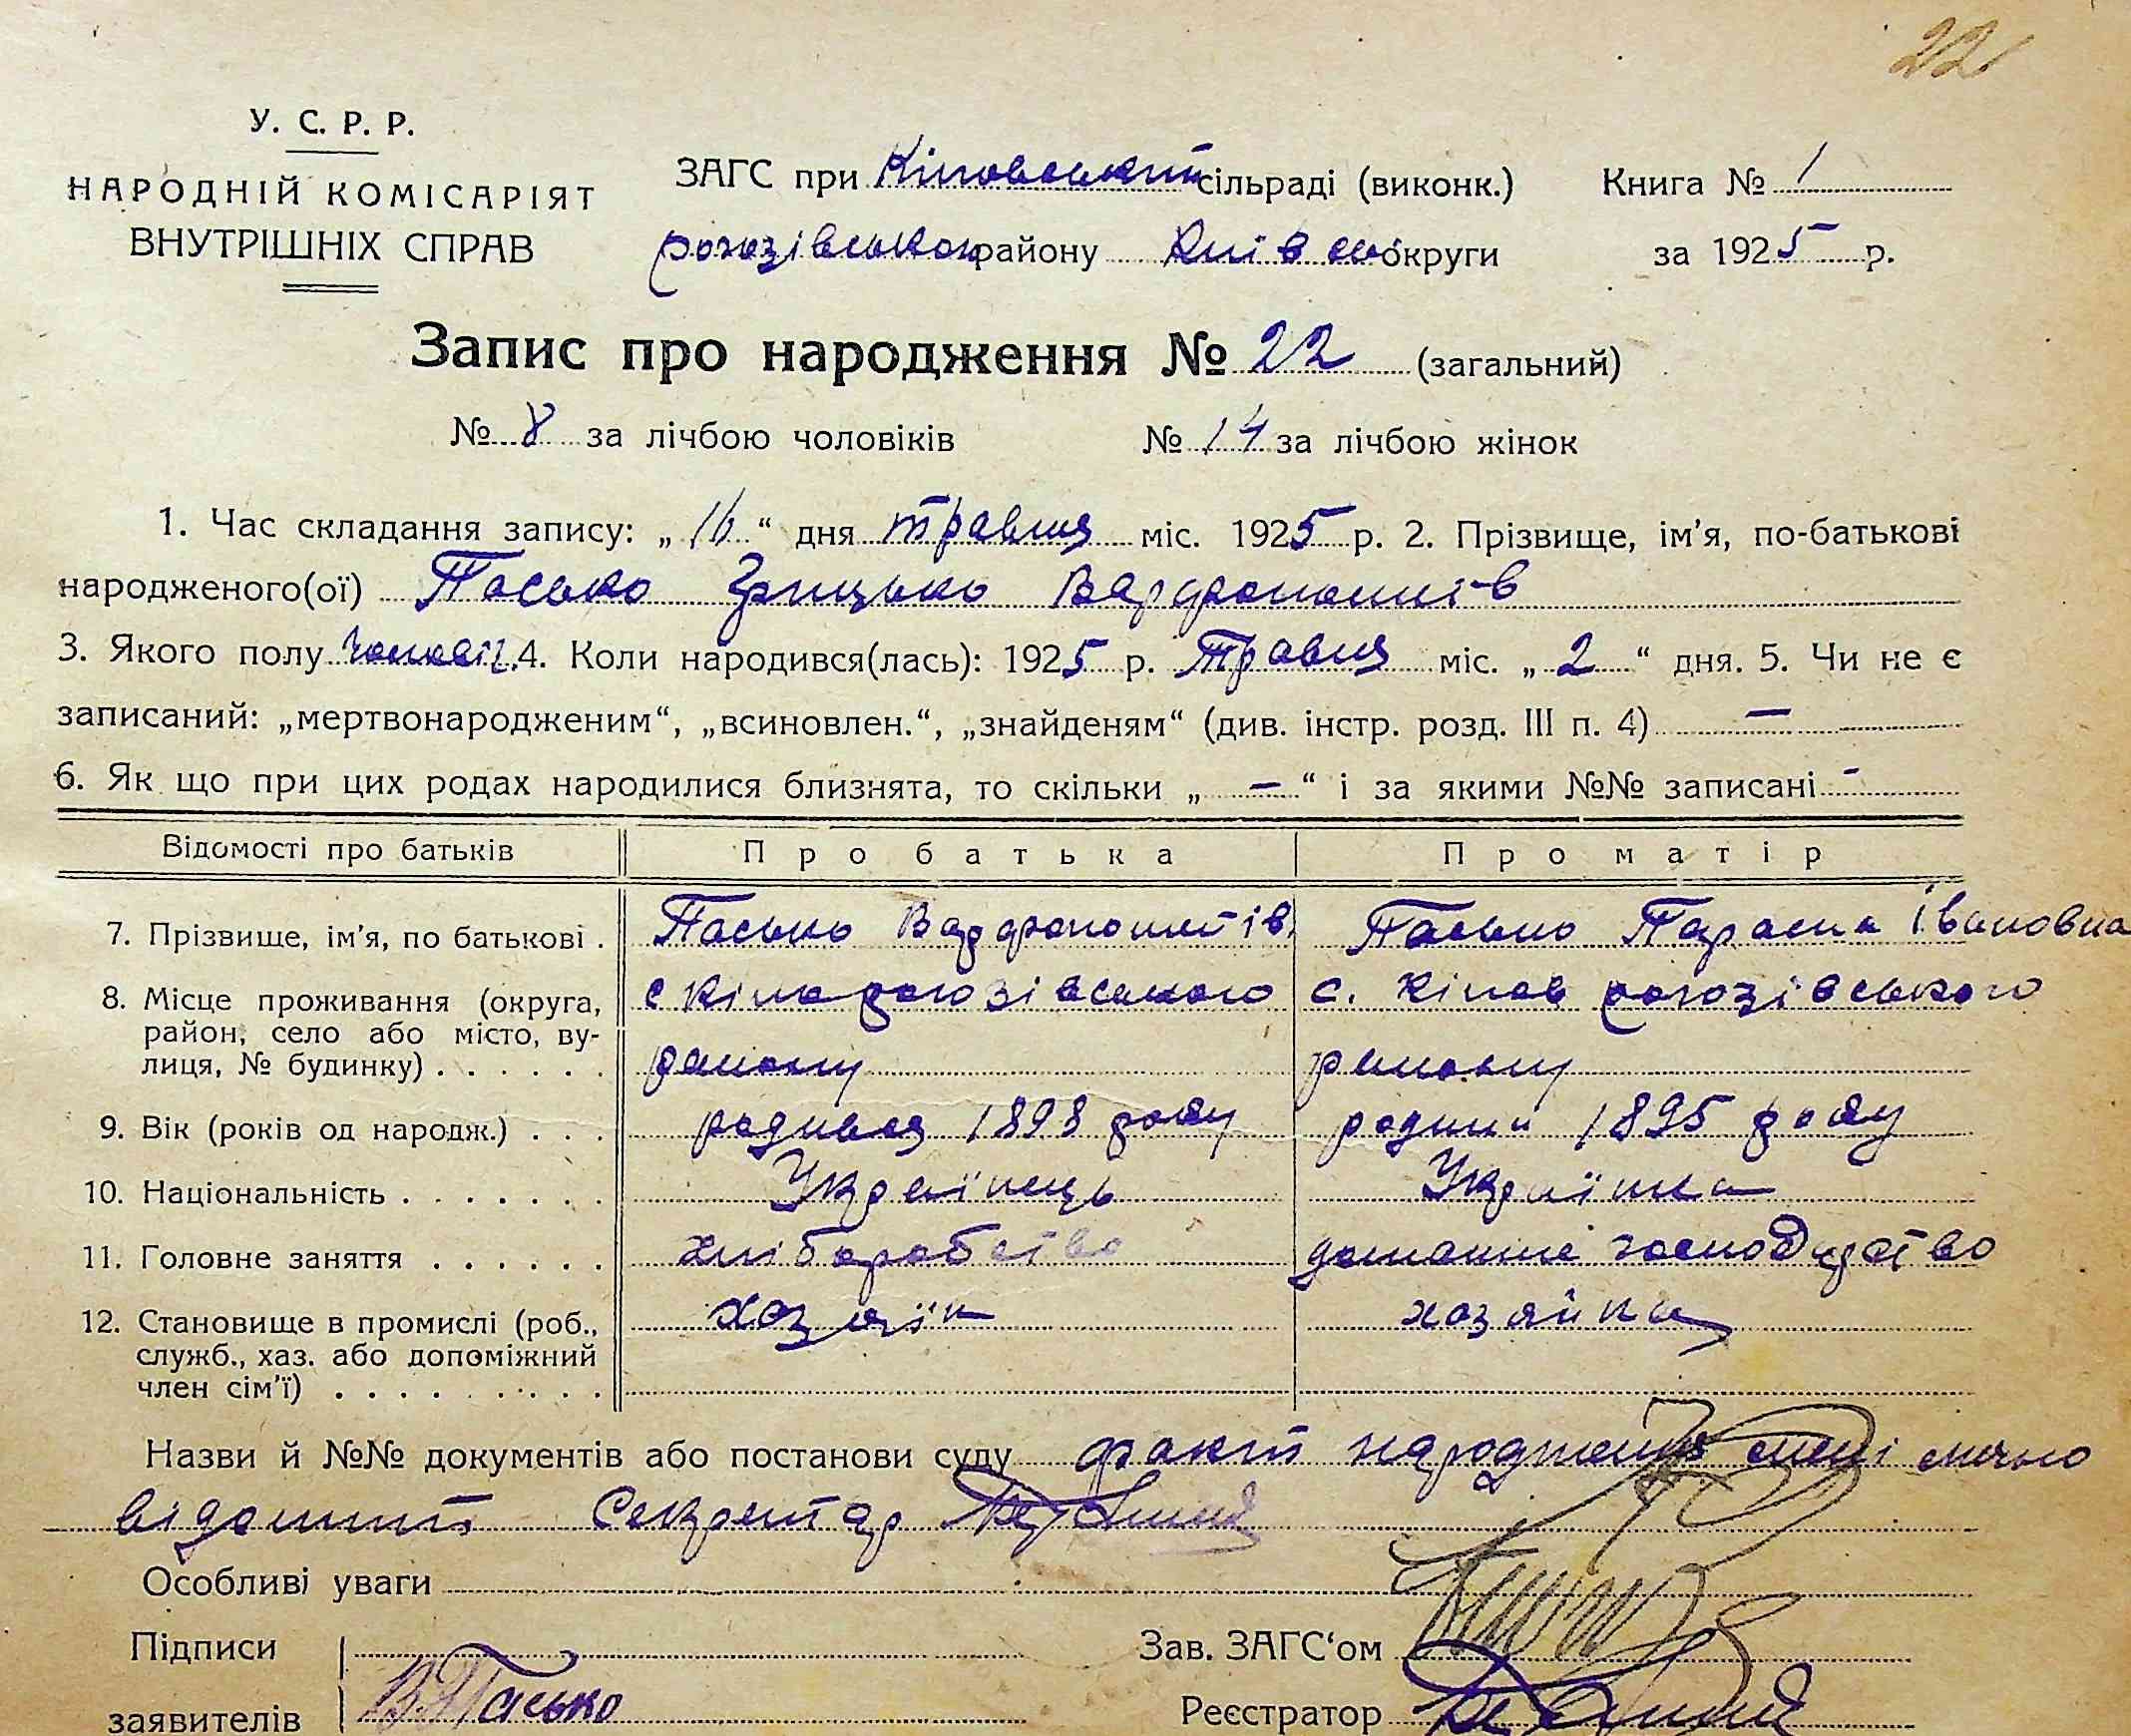 22
У. С. Р. Р.
НАРОДНІЙ КОМІСАРІЯТ
ВНУТРІШНІХ СПРАВ
ЗАГС при сільраді (виконк.)
Книга № 1
рогозівського району Київсько округи
за 1925 р.
Запис про народження № 22 (загальний)
№ 8 за лічбою чоловіків № 14 за лічбою жінок
1. Час складання запису: „16“ дня травня міс. 1925 р. 2. Прізвище, ім'я, по-батькові
народженого(ої) Пасько Грицько
3. Якого полу 4. Коли народився(лась): 1925 р. Травня міс. „2“ дня. 5. Чи не є
записаний: „мертвонародженим“, „всиновлен.“, „знайденям“ (див. інстр. розд. III п. 4) —
6. Як що при цих родах народилися близнята, то скільки „ — “ і за якими №№ записані -
Відомості про батьків Про батька Про матір
7. Прізвище, ім'я, по батькові . Пасько Пасько Параска Івановна
8. Місце проживання (округа,
район, село або місто, ву-
лиця, № будинку) . . . . . .
с рогозівського
району
с. рогозівського
району
9. Вік (років од народж.) . . . родився 1898 году 1895 году
10. Національність . . . . . . . Українець Українка
11. Головне заняття . . . . . . хліборобство домашнє господарство
12. Становище в промислі (роб.,
служб., хаз. або допоміжний
член сім'ї) . . . . . . . . . .
хозяїн
хозяйка
Назви й №№ документів або постанови суду факт народження мені
відомий Секретар
Особливі уваги
Підписи
заявителів
В. Пасько
Зав. ЗАГС'ом
Реєстратор